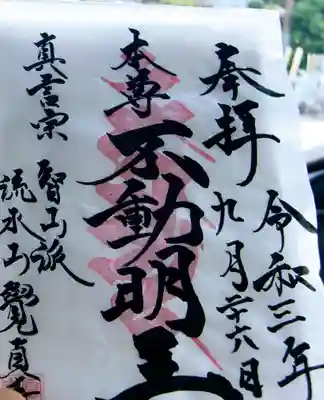 奉拝
令和三年
九月二十六日
本尊
不動明王
真言宗
智山派
流水山覺眞